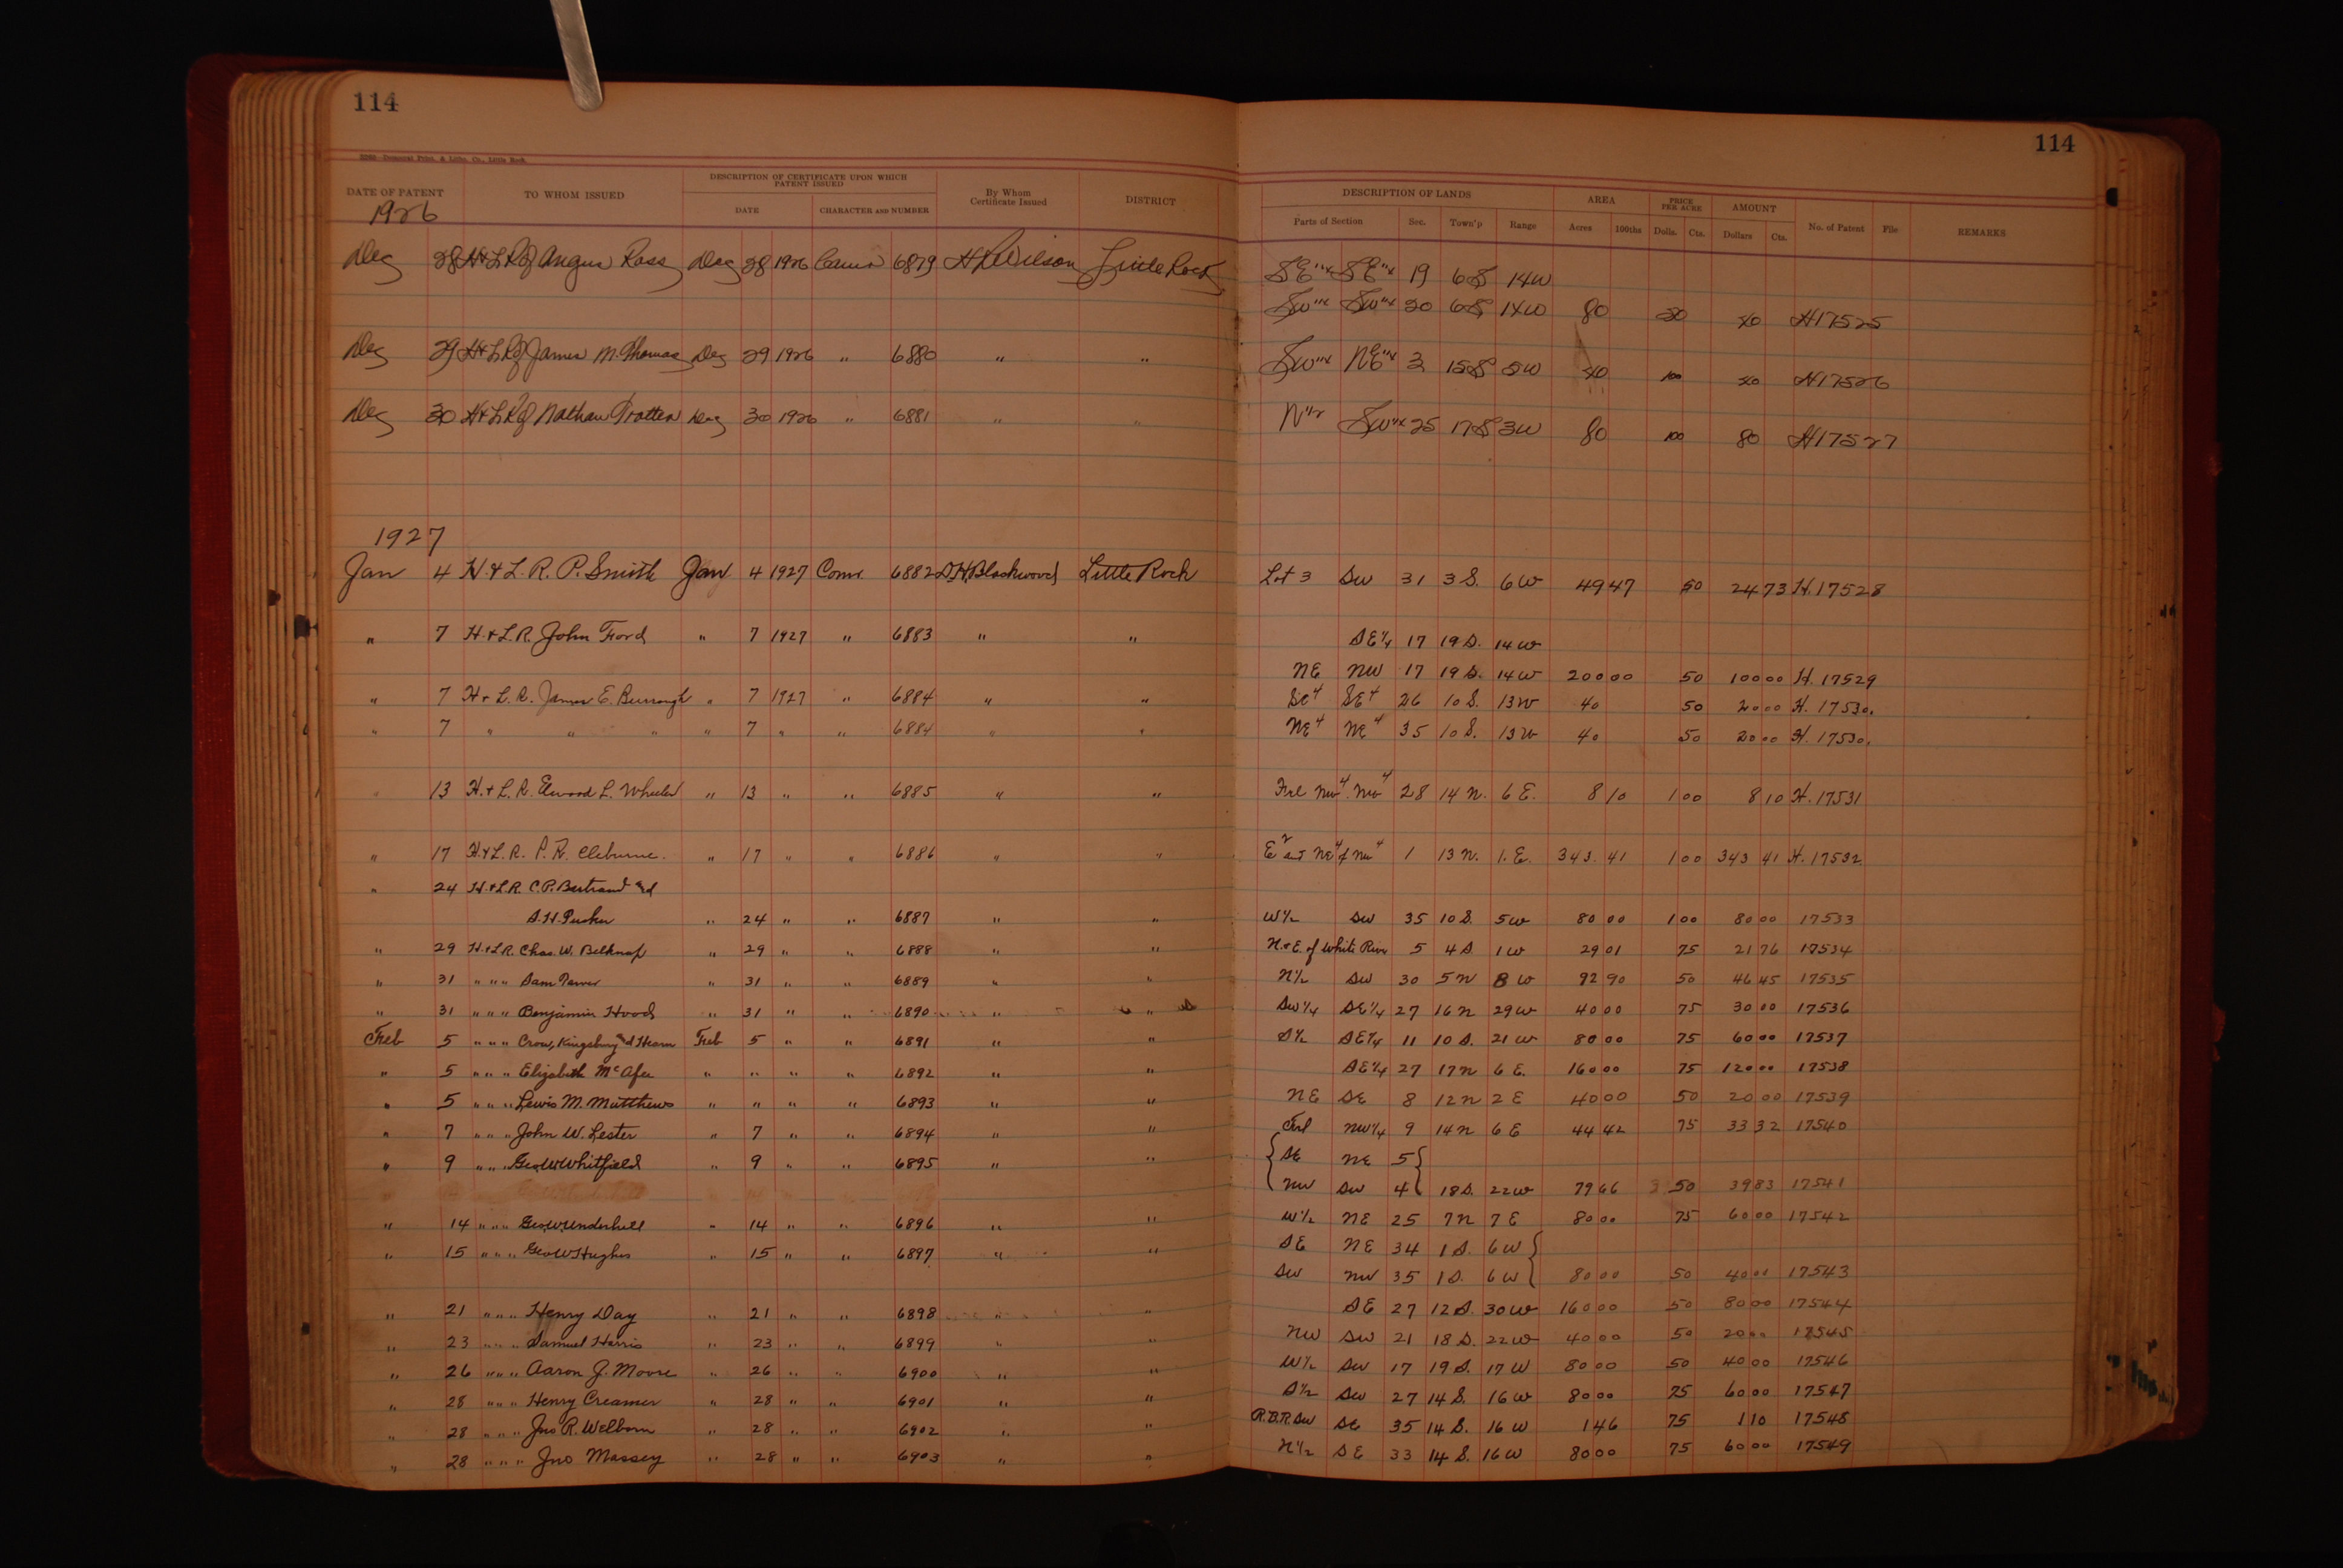 114
114
2269—Democrat Print. & Litho. Co., Little Rock
DATE OF PATENT TO WHOM ISSUED DESCRIPTION OF CERTIFICATE UPON WHICH PATENT ISSUED By Whom Certificate Issued DISTRICT DESCRIPTION OF LANDS AREA PRICE PER ACRE AMOUNT No. of Patent File REMARKS
DATE CHARACTER AND NUMBER Parts of Section Sec. Town'p Range Acres 100ths Dolls. Cts. Dollars Cts.
1926
Dec 28 H & L R of Angus Ross Dec 28 1926 6879 Wilson Little Rock SE"4 SE"4 19 6S 14W
SW"4 SW"4 20 6S 14W 80 50 40 H17525
Dec 29 H & L R of James M. Thomas Dec 29 1926 " 6880 " " SW"4 NE"4 3 15S 5W 40 100 40 H17526
Dec 30 H & L R of Nathan Trotter Dec 30 1926 " 6881 " " N"2 SW"4 25 17S 3W 80 100 80 H17527
1927
Jan 4 H. & L. R. P. Smith Jan 4 1927 Comr. 6882 D.H. Blackwood Little Rock Lot 3 SW 31 3 S. 6 W 49 47 50 24 73 H. 17528
" 7 H. & L. R. John Ford " 7 1927 " 6883 " " SE¼ 17 19 S. 14 W
NE NW 17 19 S. 14 W 200 00 50 100 00 H. 17529
" 7 H & L. R. James E. Burrough " 7 1927 " 6884 " " SE4 SE4 26 10 S. 13 W 40 50 20 00 H. 17530.
" 7 " " " " 7 " " 6884 " " NE4 NE4 35 10 S. 13 W 40 50 20 00 H. 17530.
13 H. & L. R. Elwood L. Wheeler " 13 " " 6885 " " Frl NW4 NW4 28 14 N. 6 E. 8 10 1 00 8 10 H. 17531
" 17 H. & L. R. P. R. Cleburne. " 17 " " 6886 " " E2 and NE4 of NW4 1 13 N. 1. E. 343. 41 1 00 343 41 H. 17532
" 24 H. & L. R. C. P. Bertrand and
S. H. Tucker " 24 " " 6887 " " W½ SW 35 10 S. 5 W 80 00 1 00 80 00 17533
" 29 H. & L. R. Chas. W. Belknap " 29 " " 6888 " " N. & E. of White River 5 4 S. 1 W 29 01 75 21 76 17534
" 31 " " " Sam " 31 " " 6889 " " N½ SW 30 5 N 8 W 92 90 50 46 45 17535
" 31 " " " Benjamin Hood " 31 " " 6890 " " SW¼ SE¼ 27 16 N 29 W 40 00 75 30 00 17536
Feb 5 " " " Crow, Kingsbury and Hearn Feb 5 " " 6891 " " S½ SE¼ 11 10 S. 21 W 80 00 75 60 00 17537
" 5 " " " Elizabeth McAfee " " " " 6892 " " SE¼ 27 17 N 6 E. 160 00 75 120 00 17538
" 5 " " " Lewis M. Matthews " " " " 6893 " " NE SE 8 12 N 2 E 40 00 50 20 00 17539
" 7 " " " John W. Lester " 7 " " 6894 " " Frl NW¼ 9 14 N 6 E 44 42 75 33 32 17540
" 9 " " " Geo W Whitfield " 9 " " 6895 " " SE NE 5
NW SW 4 18 S. 22 W 79 66 50 39 83 17541
" 14 " " " Geo W Underhill " 14 " " 6896 " " W½ NE 25 7 N 7 E 80 00 75 60 00 17542
" 15 " " " Geo W Hughes " 15 " " 6897 " " SE NE 34 1 S. 6 W
SW NW 35 1 S. 6 W 80 00 50 40 00 17543
" 21 " " " Henry Day " 21 " " 6898 " " SE 27 12 S. 30 W 160 00 50 80 00 17544
" 23 " " " Samuel Harris " 23 " " 6899 " " NW SW 21 18 S. 22 W 40 00 50 20 00 17545
" 26 " " " Aaron J. Moore " 26 " " 6900 " " W½ SW 17 19 S. 17 W 80 00 50 40 00 17546
" 28 " " " Henry Creamer " 28 " " 6901 " " S½ SW 27 14 S. 16 W 80 00 75 60 00 17547
" 28 " " " Jno R. Welborn " 28 " " 6902 " " R.B.R. SW SE 35 14 S. 16 W 1 46 75 1 10 17548
" 28 " " " Jno Massey " 28 " " 6903 " " N½ SE 33 14 S. 16 W 80 00 75 60 00 17549